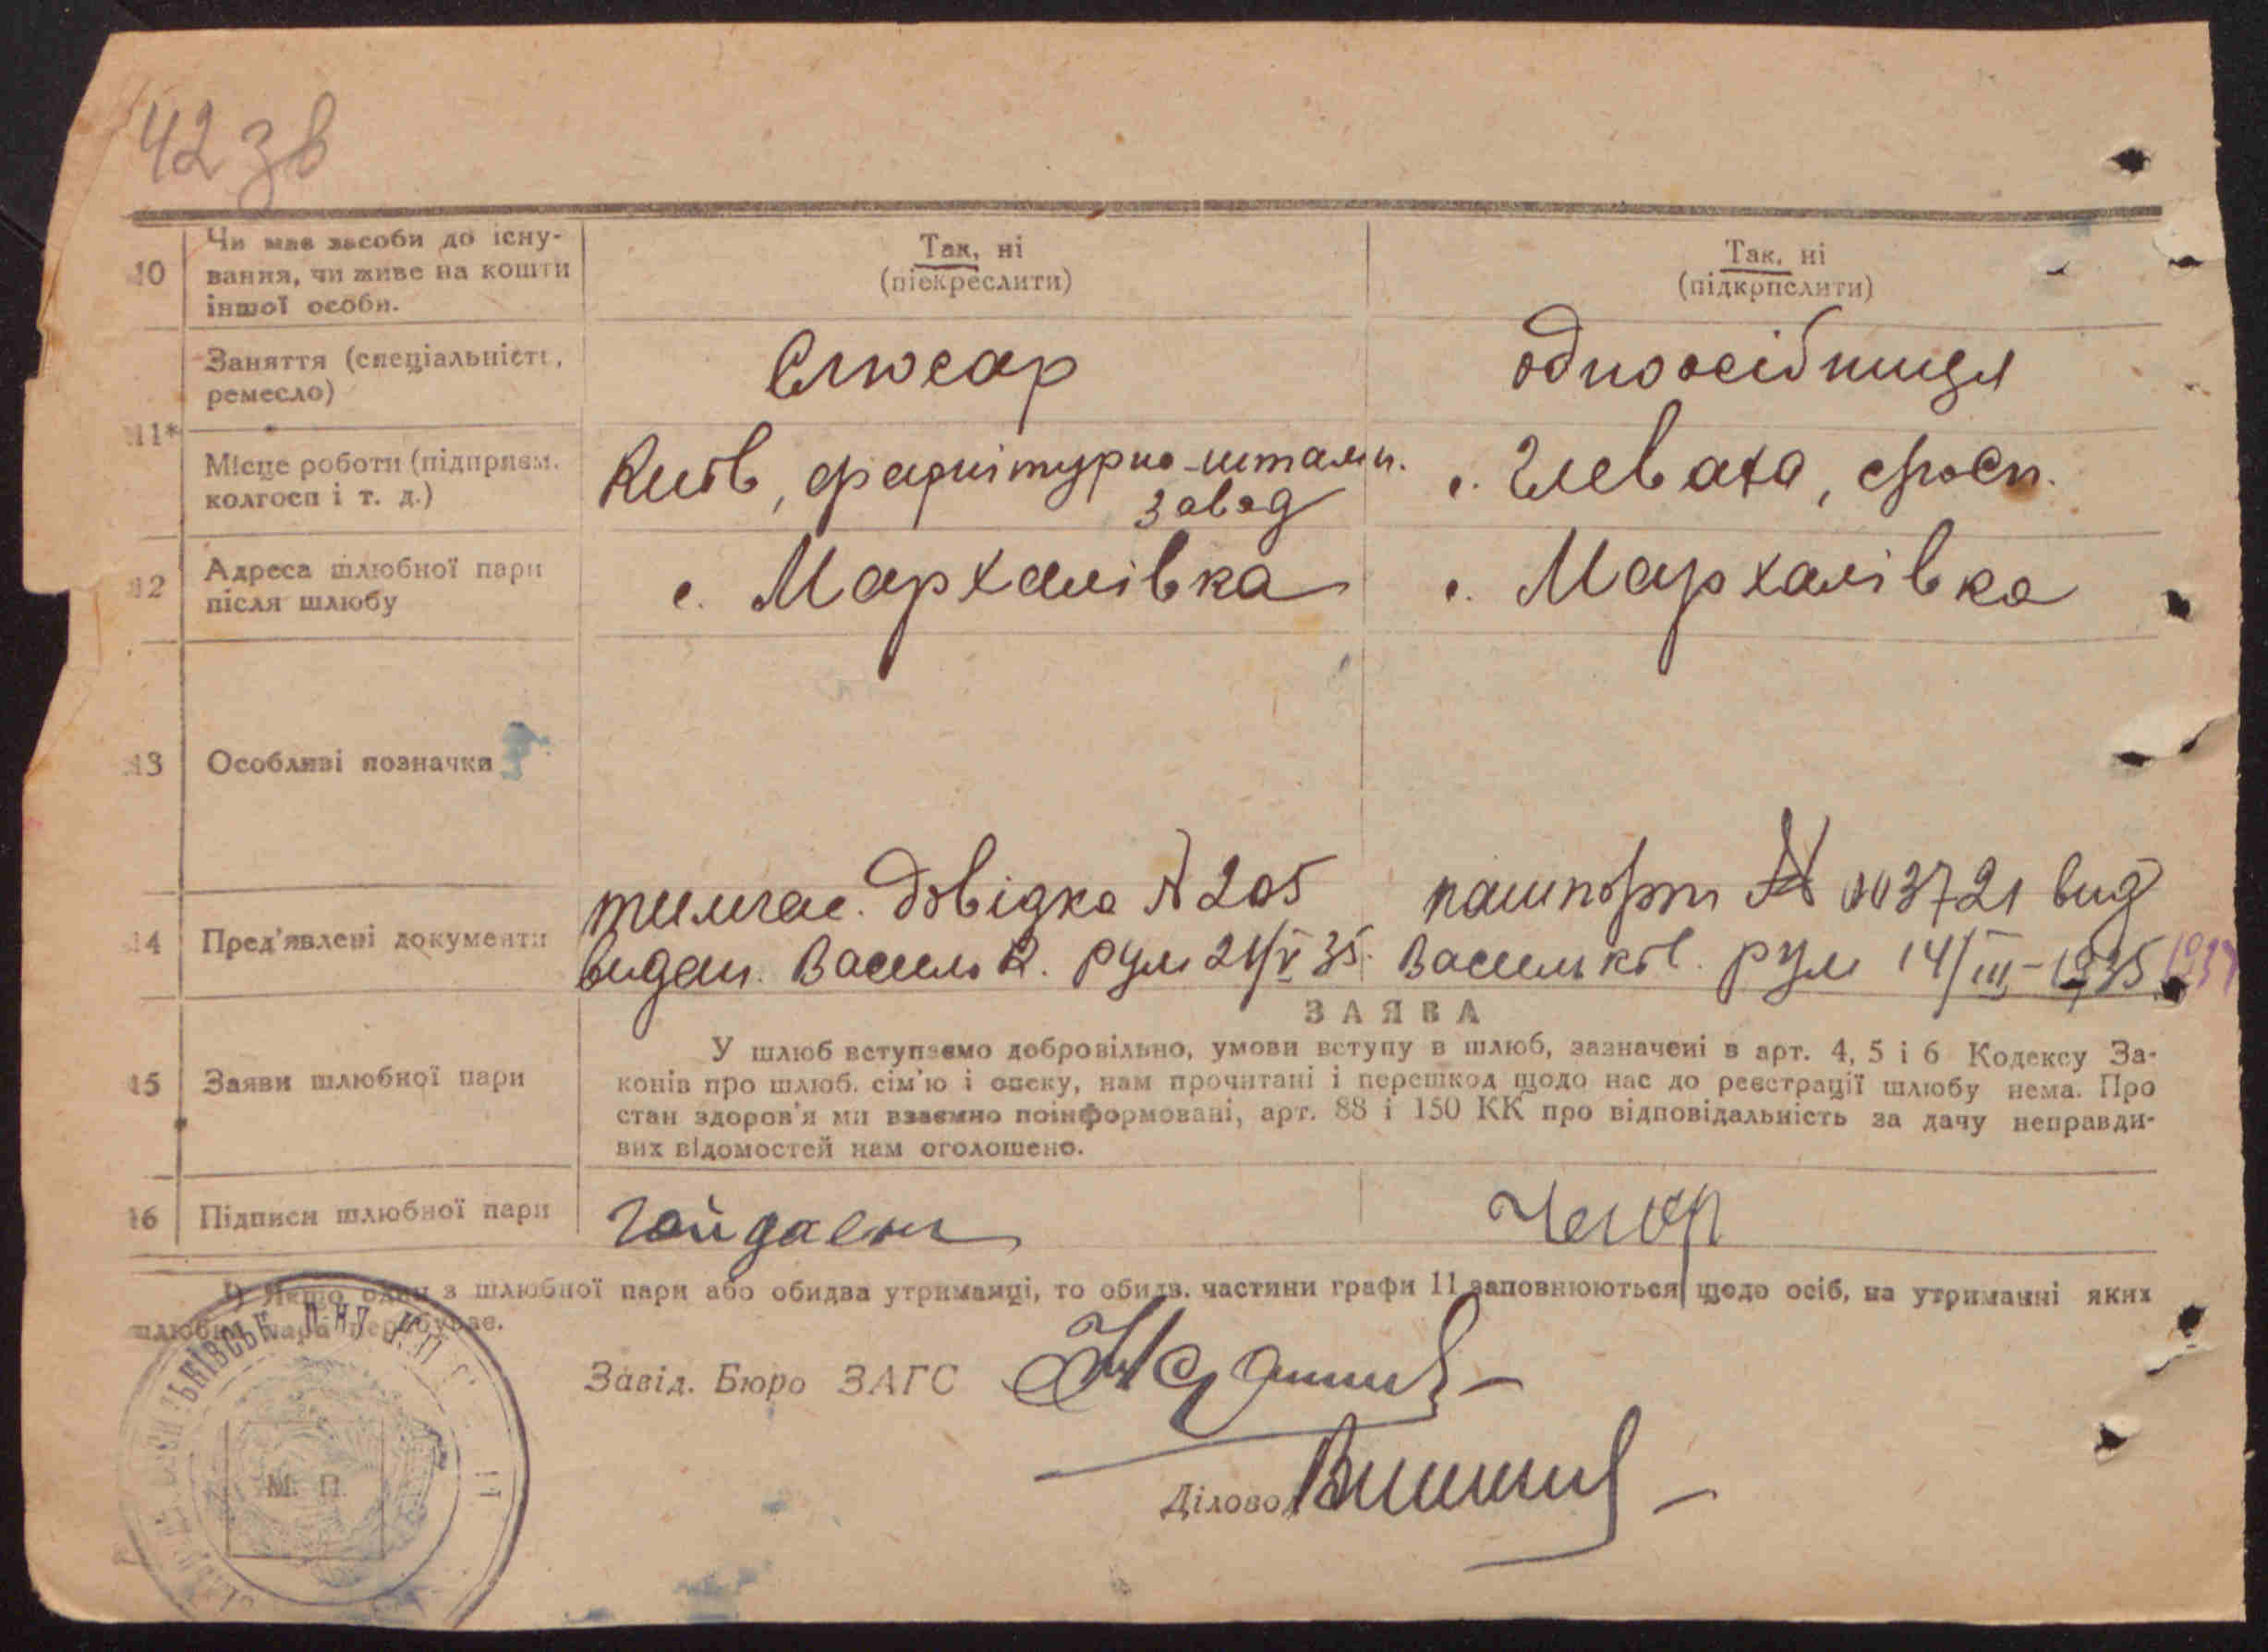 42 зв
10 Чи має засоби до існу-
вання, чи живе на кошти
іншої особи.
Так, ні
(піекреслити)
Так, ні
(підкрпслити)
Заняття (спеціальність,
ремесло)
Слюсар
одноосібниця
11*
Місце роботи (підприєм.
колгосп і т. д.)
Київ, фарнітурно-штамп.
завод
с. Глеваха,
12 Адреса шлюбної пари
після шлюбу
с. Мархалівка
с. Мархалівка
13 Особливі позначки
14 Пред'явлені документи
тимчас. довідка № 205
видан. Васильк. РУМ 21/V 35.
пашпорт № 003721 вид
Васильків. РУМ 14/III-1935 1937
15 Заяви шлюбної пари
ЗАЯВА
У шлюб вступаємо добровільно, умови вступу в шлюб, зазначені в арт. 4, 5 і 6 Кодексу За-
конів про шлюб, сім'ю і опеку, нам прочитані і перешкод щодо нас до реєстрації шлюбу нема. Про
стан здоров'я ми взаємно поінформовані, арт. 88 і 150 КК про відповідальність за дачу неправди-
вих відомостей нам оголошено.
16 Підписи шлюбної пари
1) Якщо один з шлюбної пари або обидва утриманці, то обидв. частини графи 11 заповнюються щодо осіб, на утриманні яких
шлюбна пара перебуває.
Завід. Бюро ЗАГС
М. П.
Діловод